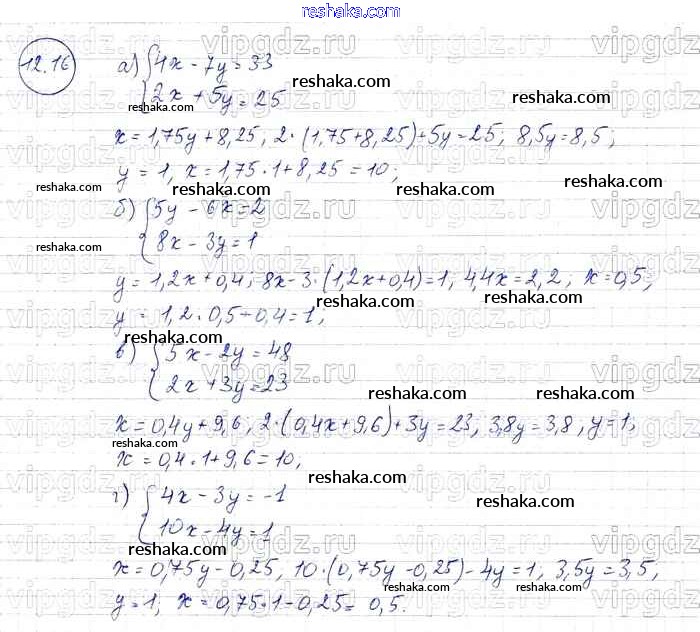 reshaka.com
12.16
а) { 4x - 7y = 33
2x + 5y = 25
x = 1,75y + 8,25, 2·(1,75+8,25)+5y=25; 8,5y=8,5;
y = 1, x = 1,75·1+8,25 = 10;
б) { 5y - 6x = 2
8x - 3y = 1
y = 1,2x + 0,4; 8x - 3·(1,2x+0,4)=1, 4,4x = 2,2; x = 0,5;
y = 1,2·0,5+0,4=1;
в) { 5x - 2y = 48
2x + 3y = 23
x = 0,4y + 9,6, 2·(0,4x+9,6)+3y=23; 3,8y=3,8, y=1;
x = 0,4·1+9,6=10,
г) { 4x - 3y = -1
10x - 4y = 1
x = 0,75y - 0,25, 10·(0,75y - 0,25) - 4y = 1, 3,5y = 3,5,
y = 1; x = 0,75·1 - 0,25 = 0,5.